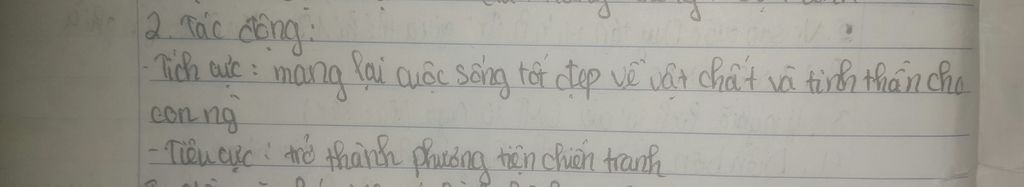 2. Tác động:
- Tích cực: mang lại cuộc sống tốt đẹp về vật chất và tinh thần cho
con ng
- Tiêu cực: trở thành phương tiện chiến tranh